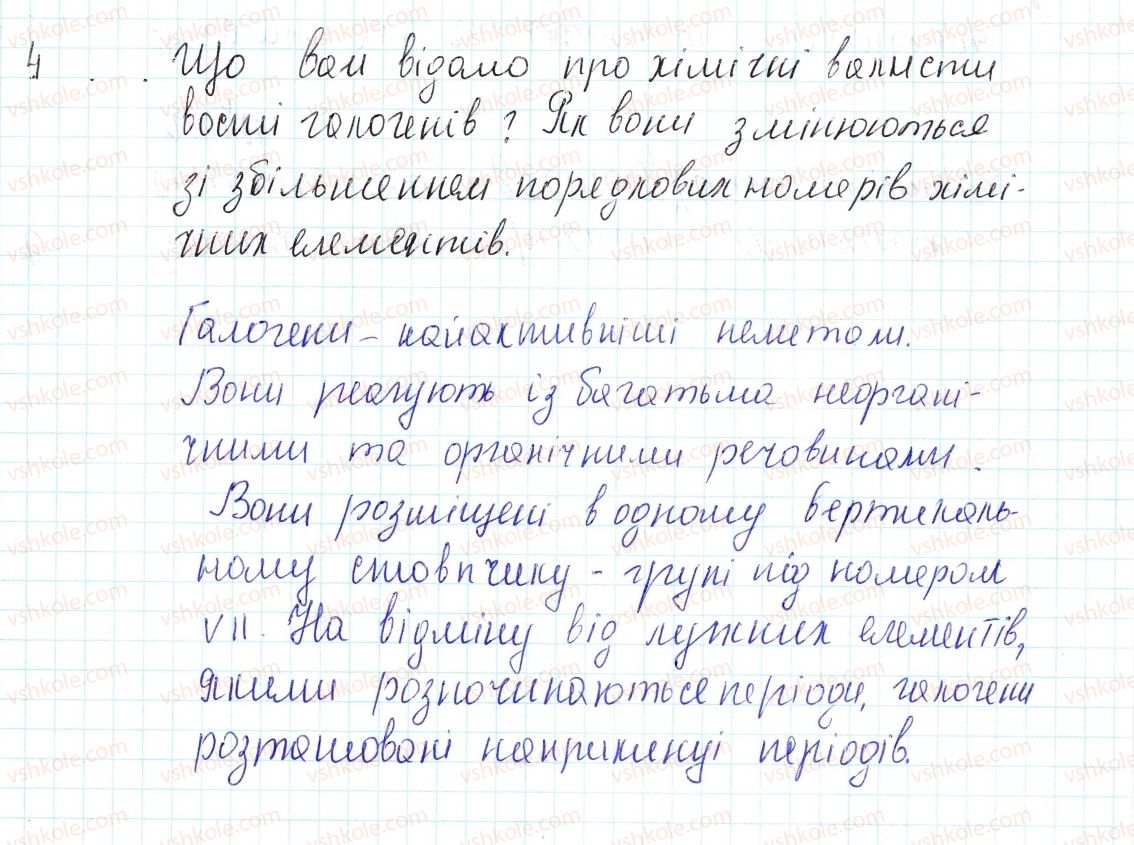 4 . . Що вам відомо про хімічні валисти
востії галогенів? Як вони змінюються
зі збільшенням порядкових номерів хімі-
чних елементів.
Галогени - найактивніші неметали.
Вони реагують із багатьма неоргані-
чними та органічними речовинами.
Вони розміщені в одному вертикаль-
ному стовпчику - групі під номером
VII. На відміну від лужних елементів,
якими розпочинаються періоди, галогени
розташовані наприкінці періодів.